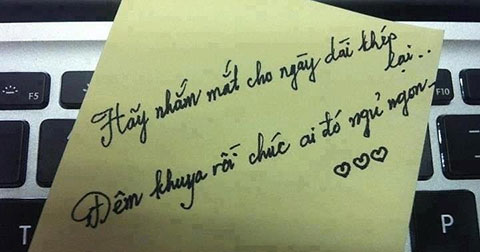 Hãy nhắm mắt cho ngày dài khép
lại..
Đêm khuya rồi chúc ai đó ngủ ngon_
♡♡♡
F5
F10
T
P